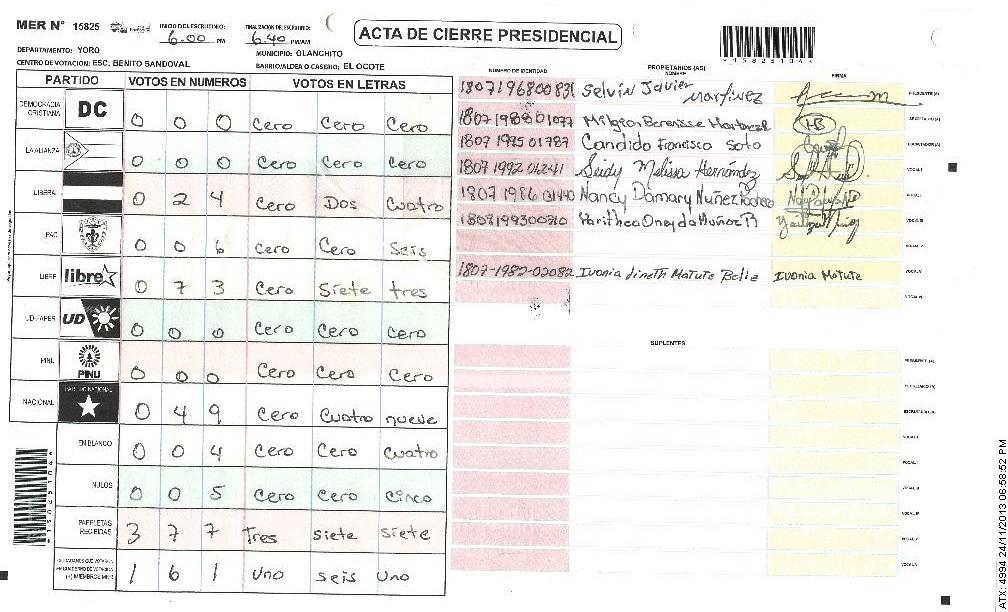 MER N° 15825
INICIO DEL ESCRUTINIO:
6.00 PM
FINALIZACION DEL ESCRUTINIO:
6.40 PM/AM
ACTA DE CIERRE PRESIDENCIAL
*15825104*
DEPARTAMENTO: YORO
MUNICIPIO: OLANCHITO
CENTRO DE VOTACION: ESC. BENITO SANDOVAL
BARRIO/ALDEA O CASERIO: EL OCOTE
PARTIDO VOTOS EN NUMEROS VOTOS EN LETRAS
DEMOCRACIA CRISTIANA DC 0 0 0 Cero Cero Cero
LA ALIANZA 0 0 0 Cero Cero Cero
LIBERAL 0 2 4 Cero Dos Cuatro
PAC 0 0 6 Cero Cero Seis
LIBRE libre 0 7 3 Cero Siete tres
UD-FAPER UD 0 0 0 Cero Cero Cero
PINU PINU 0 0 0 Cero Cero Cero
NACIONAL PARTIDO NACIONAL 0 4 9 Cero Cuatro nueve
EN BLANCO 0 0 4 Cero Cero Cuatro
NULOS 0 0 5 Cero Cero Cinco
PAPELETAS RECIBIDAS 3 7 7 Tres siete siete
CIUDADANOS QUE VOTARON EN CUADERNO DE VOTACION (+) MIEMBROS MER 1 6 1 Uno seis Uno
PROPIETARIOS (AS)
NUMERO DE IDENTIDAD NOMBRE FIRMA
1807196800831 Selvin Javier Martinez PRESIDENTE (A)
1807 1988 01077 Berenisse HB SECRETARIO (A)
1807 1995 01787 Candido Francisco Soto ESCRUTADOR (A)
1807 1992 01241 Seidy Melissa Hernández VOCAL I
1807 1986 01440 Nancy Damary Nuñez VOCAL II
1807199300210 VOCAL III
VOCAL IV
1807-1982-02082 Ivonia Lineth Matute Beliz Ivonia Matute VOCAL V
VOCAL VI
SUPLENTES
PRESIDENTE (A)
SECRETARIO (A)
ESCRUTADOR (A)
VOCAL I
VOCAL II
VOCAL III
VOCAL IV
VOCAL V
VOCAL VI
*15825104*
ATX: 4994 24/11/2013 06:58:52 PM